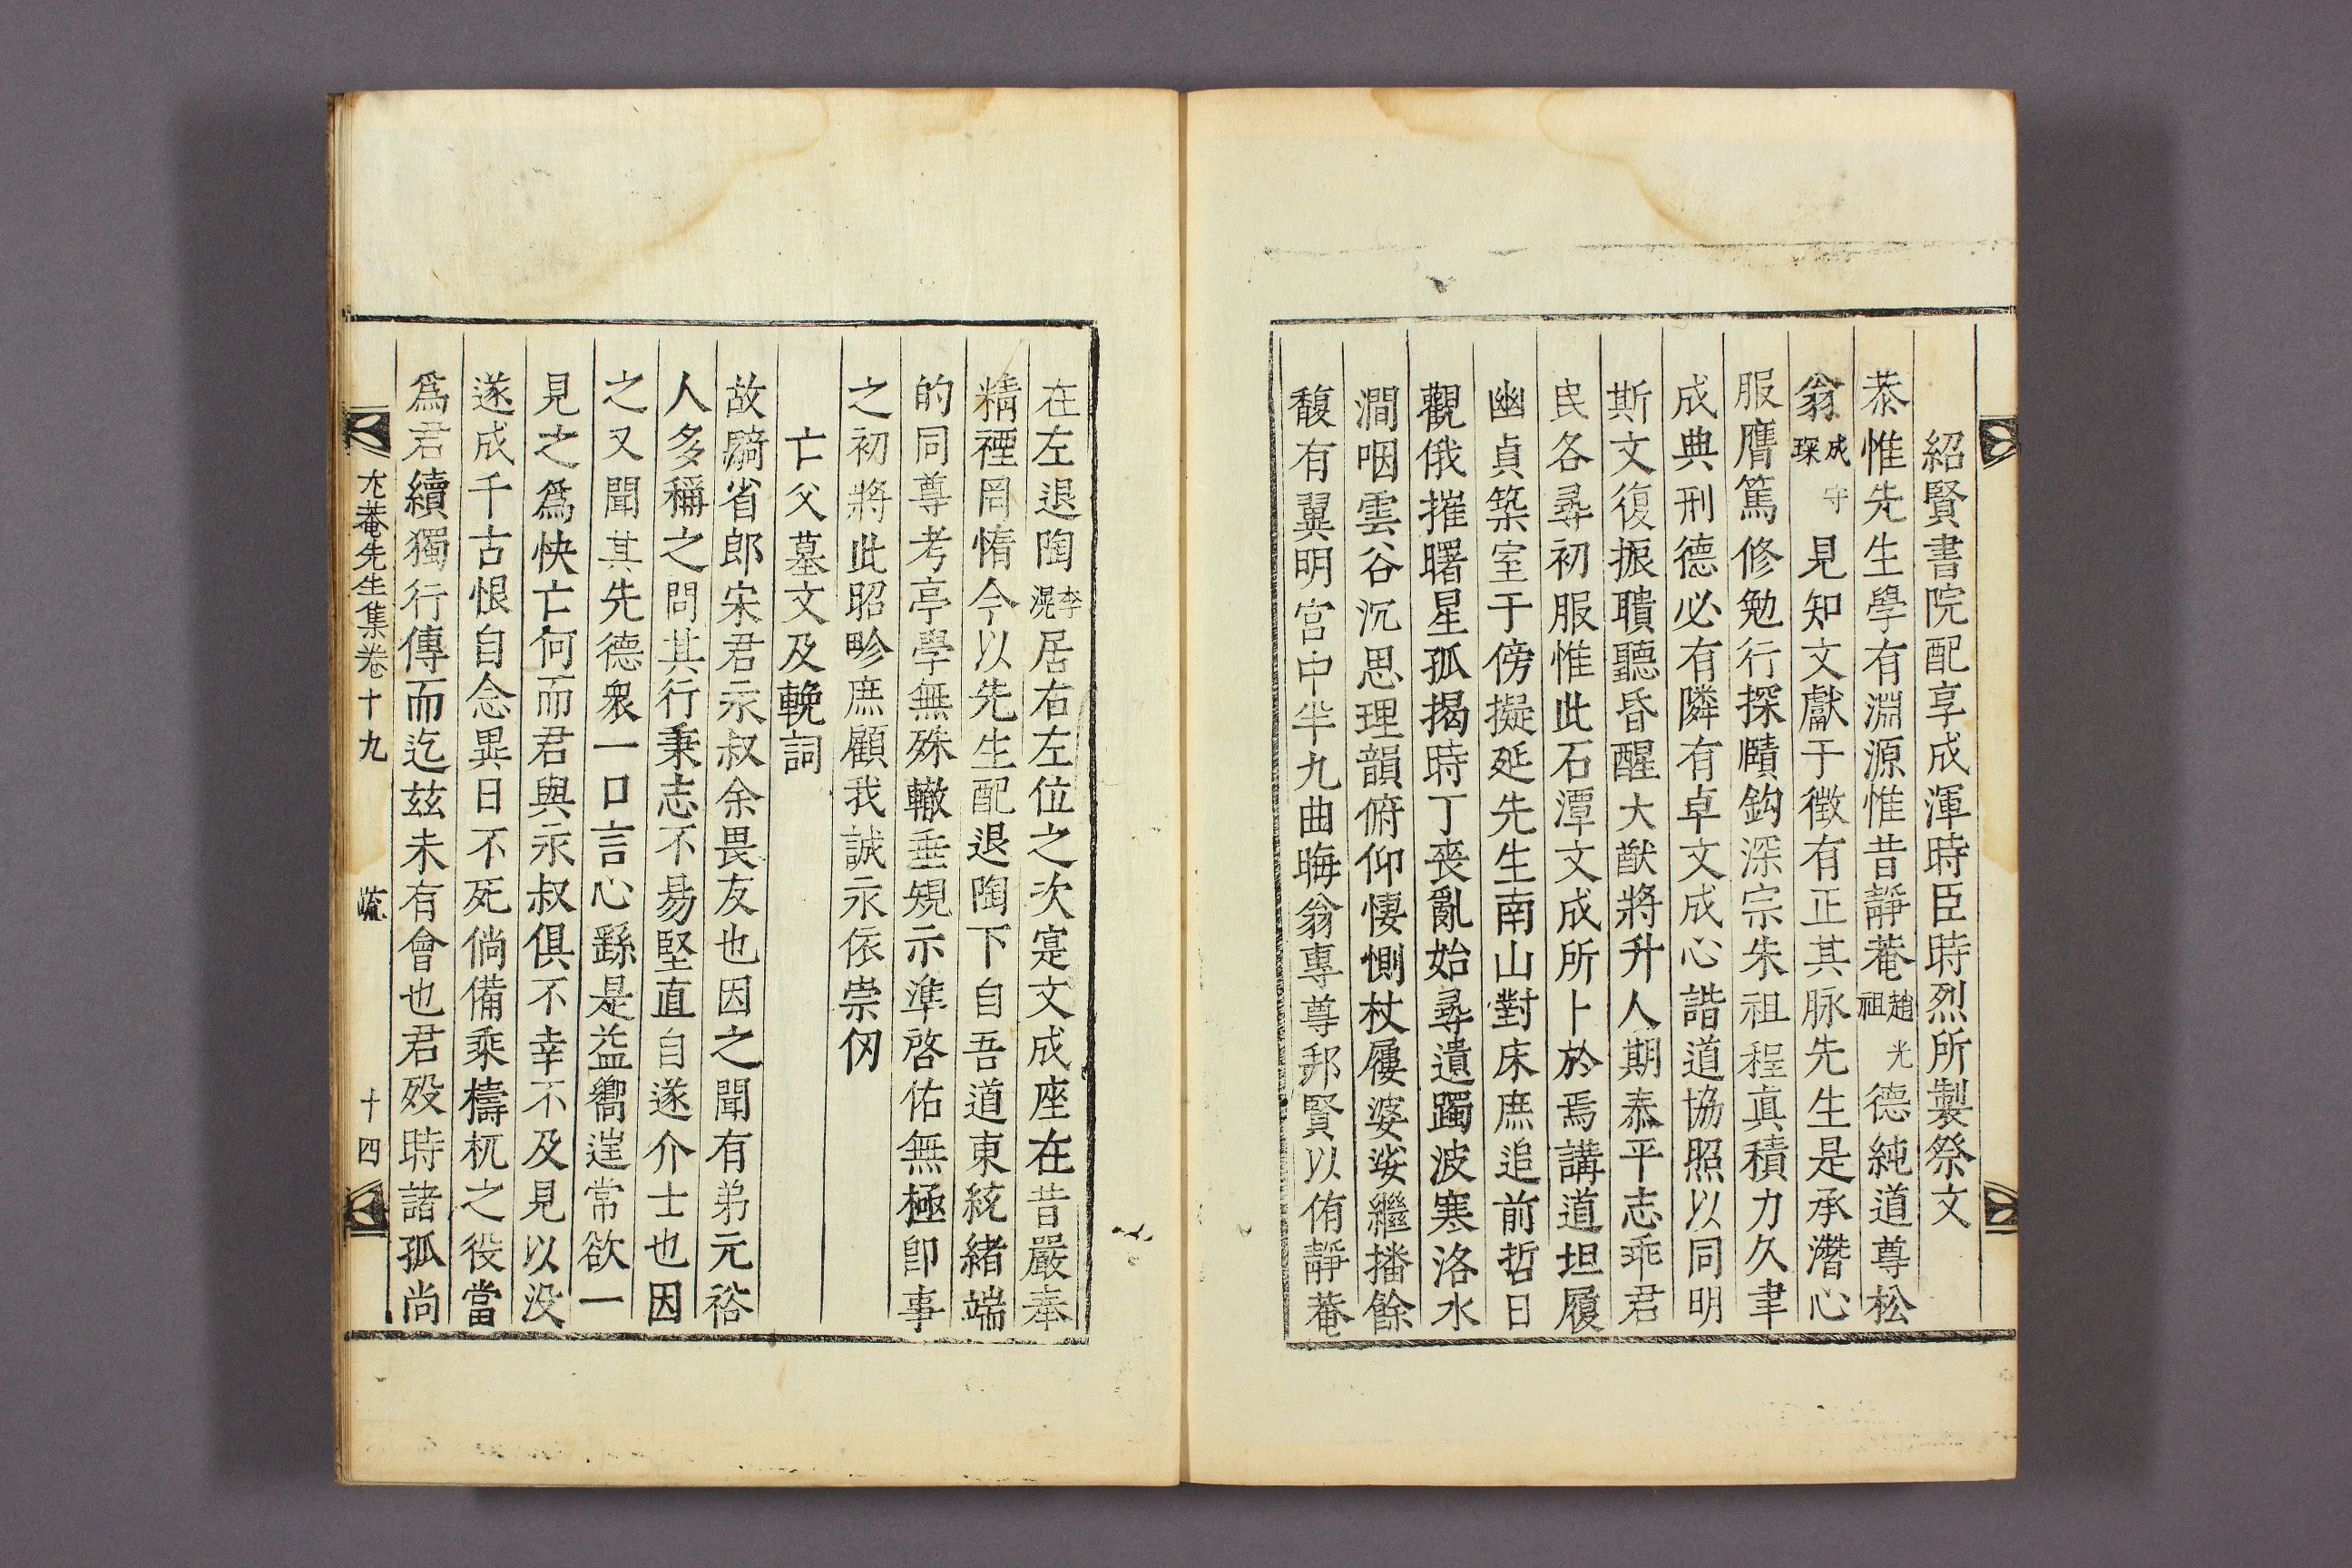 紹賢書院配享成渾時臣時烈所製祭文
恭惟先生學有淵源惟昔靜菴趙光祖德純道尊松
翁成守琛見知文獻于徵有正其脉先生是承濳心
服膺篤修勉行探賾鈎深宗朱祖程眞積力久聿
成典刑德必有隣有卓文成心諧道協照以同明
斯文復振聵聽昏醒大猷將升人期泰平志乖君
民各尋初服惟此石潭文成所卜於焉講道坦履
幽貞築室于傍擬延先生南山對床庶追前哲日
觀俄摧曙星孤揭時丁喪亂始尋遺躅波寒洛水
澗咽雲谷沉思理韻俯仰悽惻杖屨婆娑繼播餘
馥有翼明宮中半九曲晦翁專尊邦賢以侑靜菴
在左退陶李滉居右左位之次寔文成座在昔嚴奉
精禋罔惰今以先生配退陶下自吾道東統緒端
的同尊考亭學無殊轍垂䂓示準啓佑無極卽事
之初將此昭畛庶顧我誠永依崇仞
亡父墓文及輓詞
故騎省郎宋君永叔余畏友也因之聞有弟元裕
人多稱之問其行秉志不易堅直自遂介士也因
之又聞其先德衆一口言心繇是益嚮遑常欲一
見之爲快亡何而君與永叔俱不幸不及見以没
遂成千古恨自念異日不死倘備乘檮杌之役當
爲君續獨行傳而迄玆未有會也君歿時諸孤尚
尤菴先生集卷十九 疏 十四